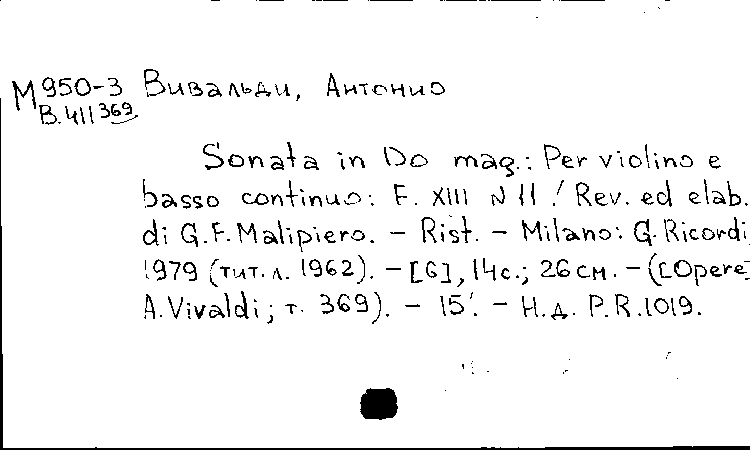 М950-3 Вивальди, Антонио
В.411369
Sonata in Do mag.: Per violino e
basso continuo: F. XIII N 11 / Rev. ed elab.
di G.F. Malipiero. – Rist. – Milano: G. Ricordi,
1979 (тит. л. 1962). – [6], 14 с.; 26 см. – ([Opere]
A. Vivaldi; т. 369). – 15'. – Н.д. P.R.1019.